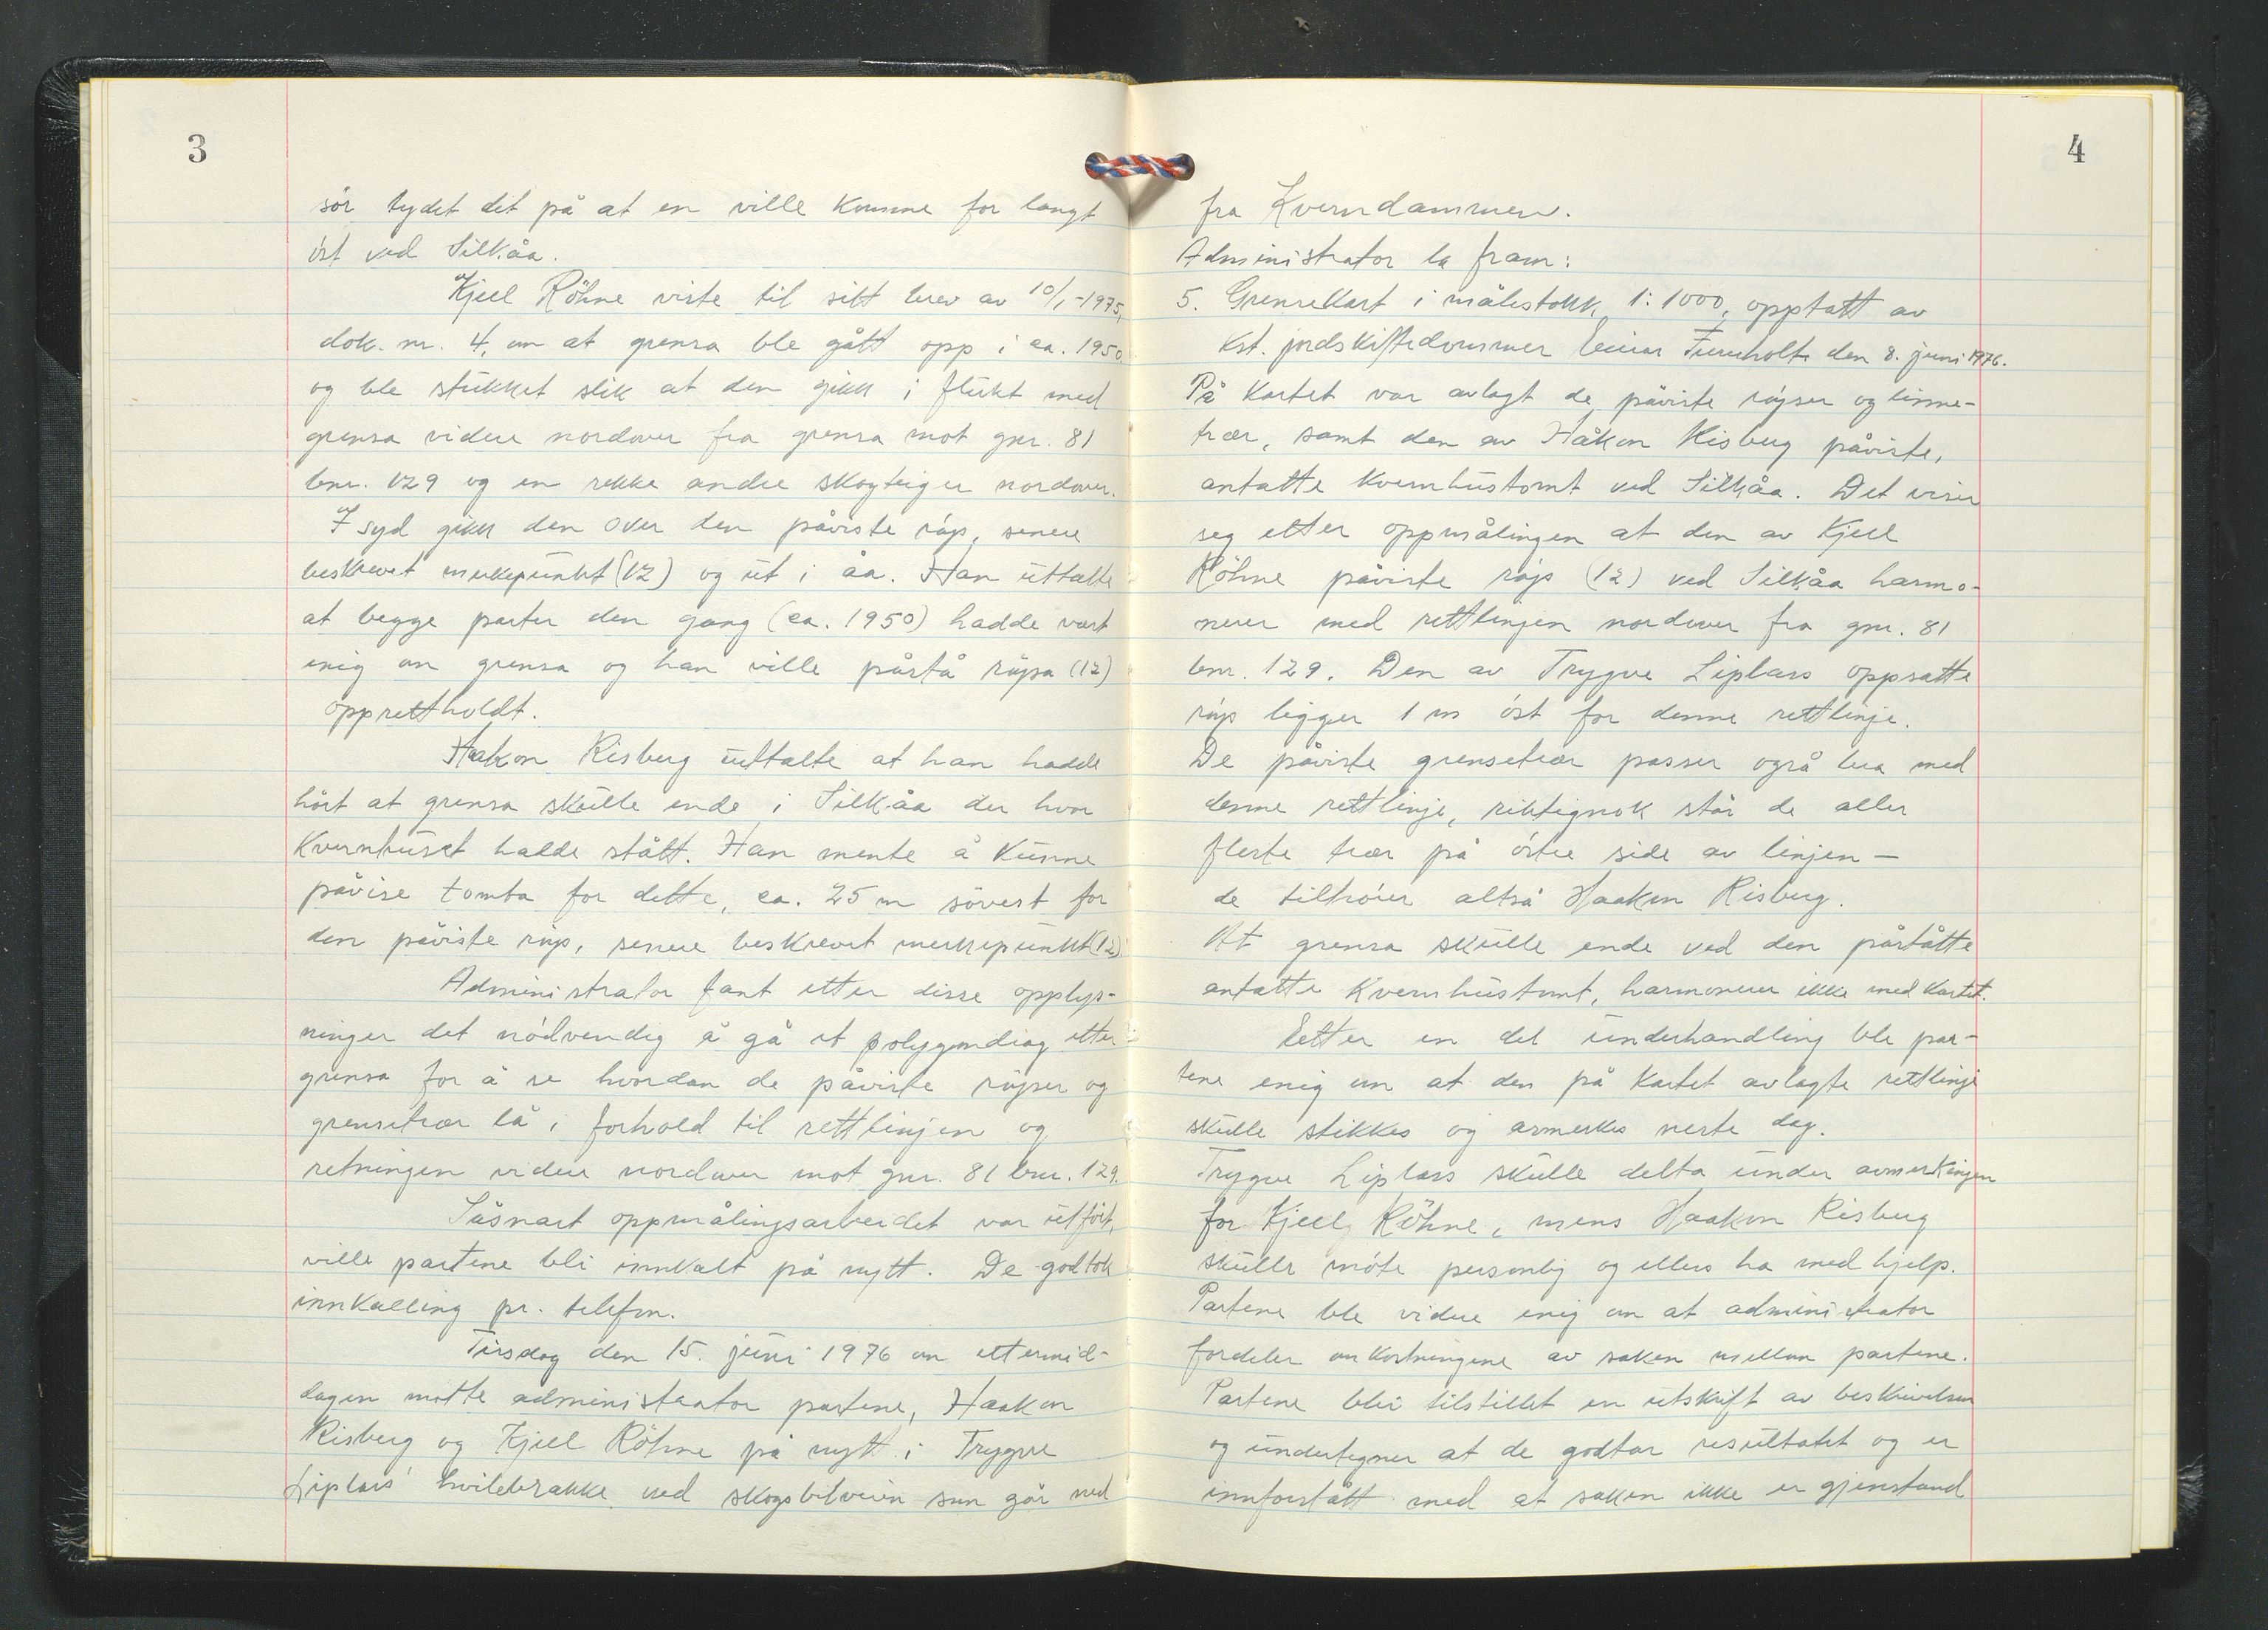 3
sör tydet det på at en ville komme for langt
öst ved Silkåa.
Kjell Röhne viste til sitt brev av 10/1-1975,
dok. nr. 4, om at grensa ble gått opp i ca. 1950
og ble stukket slik at den gikk i flukt med
grensa videre nordover fra grensa mot gnr. 81
bnr. 129 og en rekke andre skogteiger nordover.
I syd gikk den over den påviste röys, senere
beskrevet merkepunkt (12) og ut i åa. Han uttalte
at begge parter den gang (ca. 1950) hadde vært
enig om grensa og han ville påstå röysa (12)
opprettholdt.
Haakon Risberg uttalte at han hadde
hört at grensa skulle ende i Silkåa der hvor
Kvernhuset hadde stått. Han mente å kunne
påvise tomta for dette, ca. 25 m sörvest for
den påviste röys, senere beskrevet merkepunkt (12).
Administrator fant etter disse opplys-
ninger det nödvendig å gå et polygondrag etter
grensa for å se hvordan de påviste röyser og
grensetrær lå i forhold til rettlinjen og
retningen videre nordover mot gnr. 81 bnr. 129.
Såsnart oppmålingsarbeidet var utfört,
ville partene bli innkalt på nytt. De godtok
innkalling pr. telefon.
Tirsdag den 15. juni 1976 om ettermid-
dagen møtte administrator partene, Haakon
Risberg og Kjell Röhne på nytt i Trygve
Liplass' hvilebrakke ved skogsbilveien som går ned
4
fra Kverndammen.
Administrator la fram:
5. Grensekart i målestokk 1:1000, opptatt av
kst. jordskiftedommer Einar Furuholt den 8. juni 1976.
På kartet var avlagt de påviste röyser og linne-
trær, samt den av Håkon Risberg påviste,
antatte kvernhustomt ved Silkåa. Det viser
seg etter oppmålingen at den av Kjell
Röhne påviste röys (12) ved Silkåa harmo-
nerer med rettlinjen nordover fra gnr. 81
bnr. 129. Den av Trygve Liplass oppsatte
röys ligger 1 m öst for denne rettlinje.
De påviste grensetrær passer også bra med
denne rettlinje, riktignok står de aller
fleste trær på östre side av linjen –
de tilhörer altså Haakon Risberg.
At grensa skulle ende ved den påståtte
antatte Kvernhustomt, harmonerer ikke med kartet.
Etter en del underhandling ble par-
tene enig om at den på kartet avlagte rettlinje
skulle stikkes og avmerkes neste dag.
Trygve Liplass skulle delta under avmerkingen
for Kjell Röhne, mens Haakon Risberg
skulle möte personlig og ellers ha med hjelp.
Partene ble videre enig om at administrator
fordeler omkostningene av saken mellom partene.
Partene blir tilstillet en utskrift av beskrivelsen
og undertegner at de godtar resultatet og er
innforstått med at saken ikke er gjenstand